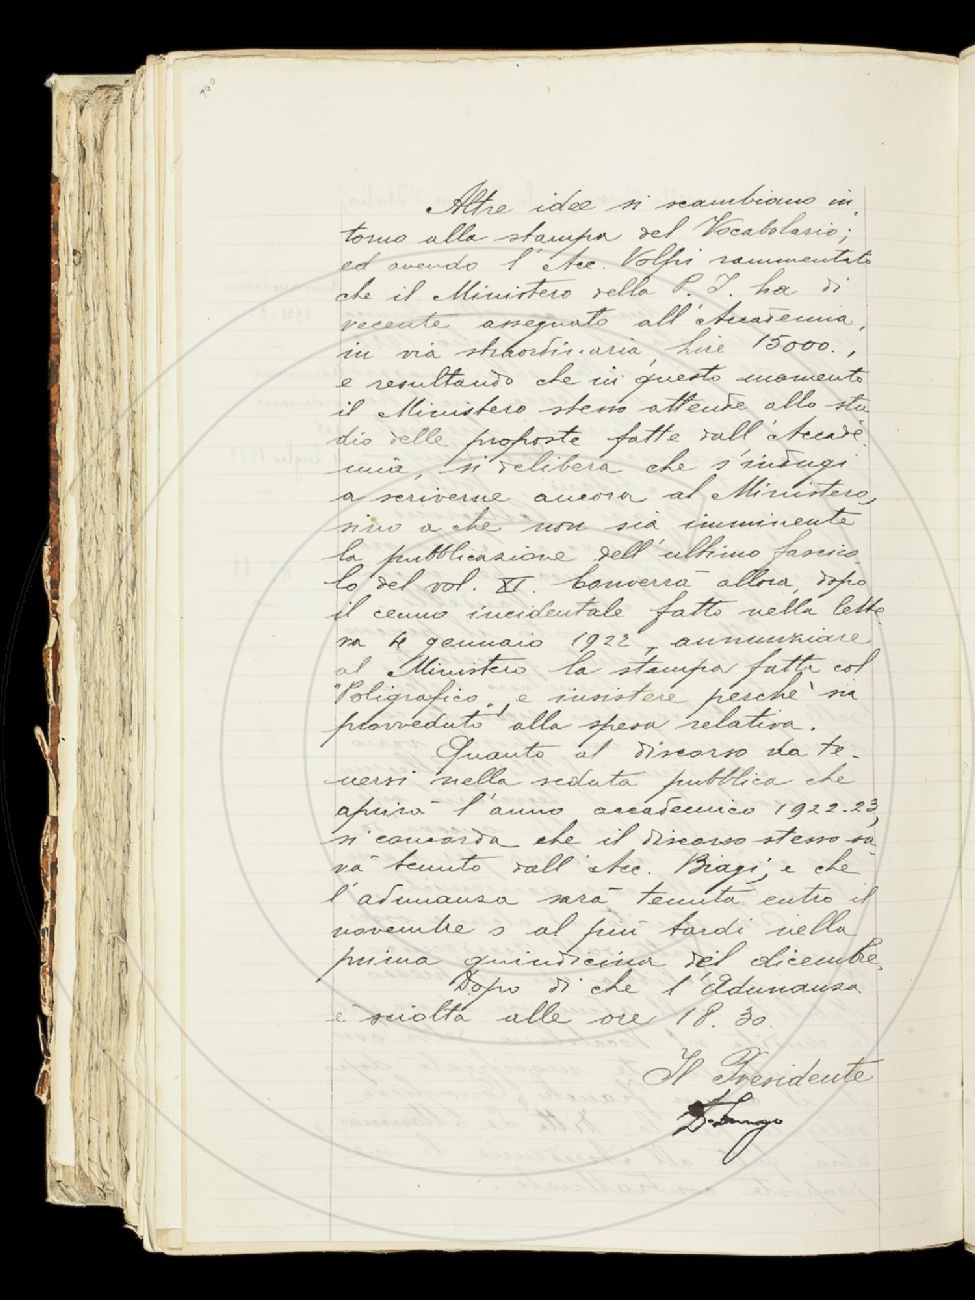 Altre idee si scambiano in
torno alla stampa del Vocabolario;
ed avendo l'Acc. Volpi rammentato
che il Ministero della P. I. ha di
recente assegnato all'Accademia,
in via straordinaria, lire 15000.,
e resultando che in questo momento
il Ministero stesso attende allo stu
dio delle proposte fatte dall'Accade
mia, si delibera che s'indugi
a scriverne ancora al Ministero,
sino a che non sia imminente
la pubblicazione dell'ultimo fascico
lo del vol. XI. Converrà allora, dopo
il cenno incidentale fatto nella lette
ra 4 gennaio 1922, annunziare
al Ministero la stampa fatta col
"Poligrafico", e insistere perchè sia
provveduto alla spesa relativa.
Quanto al discorso da te-
nersi nella seduta pubblica che
aprirà l'anno accademico 1922-23,
si concorda che il discorso stesso sa
rà tenuto dall'Acc. Biagi, e che
l'adunanza sarà tenuta entro il
novembre o al più tardi nella
prima quindicina del dicembre.
Dopo di che l'Adunanza
è sciolta alle ore 18.30.
Il Presidente